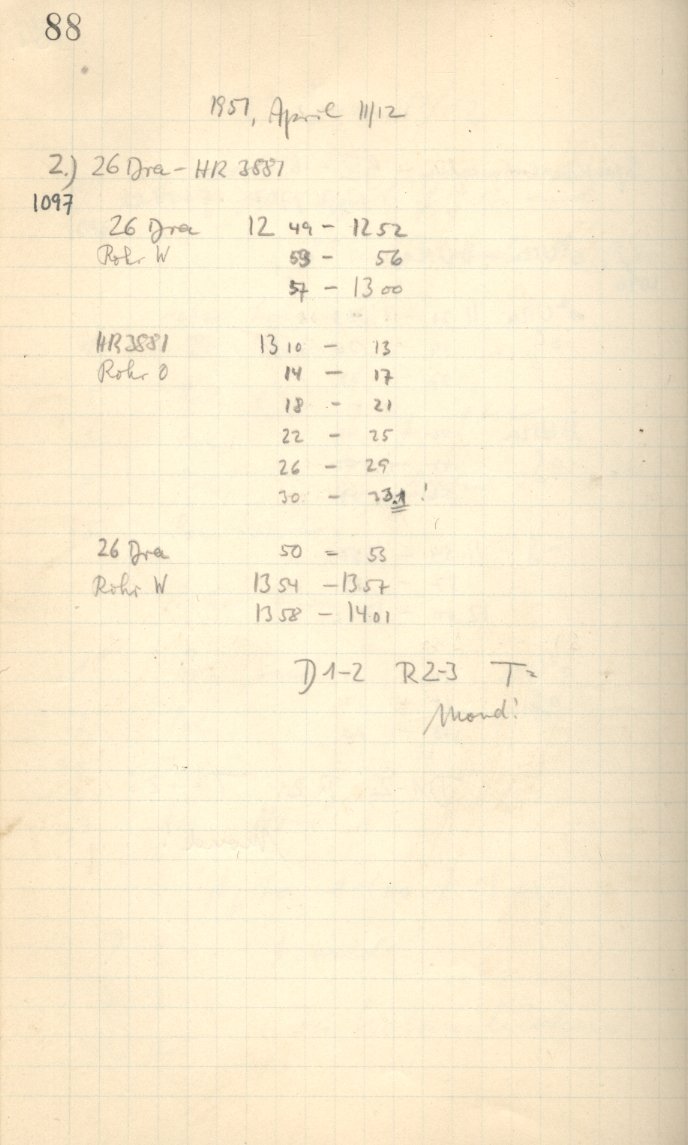 88
1951, April 11/12
2.) 26 Dra - HR 3881
1097
26 Dra 12 49 - 12 52
Rohr W 53 - 56
57 - 13 00
HR 3881 13 10 - 13
Rohr O 14 - 17
18 - 21
22 - 25
26 - 29
30 - 33.1 !
26 Dra 50 = 53
Rohr W 13 54 - 13 57
13 58 - 14 01
D 1-2 R 2-3 T =
Mond!